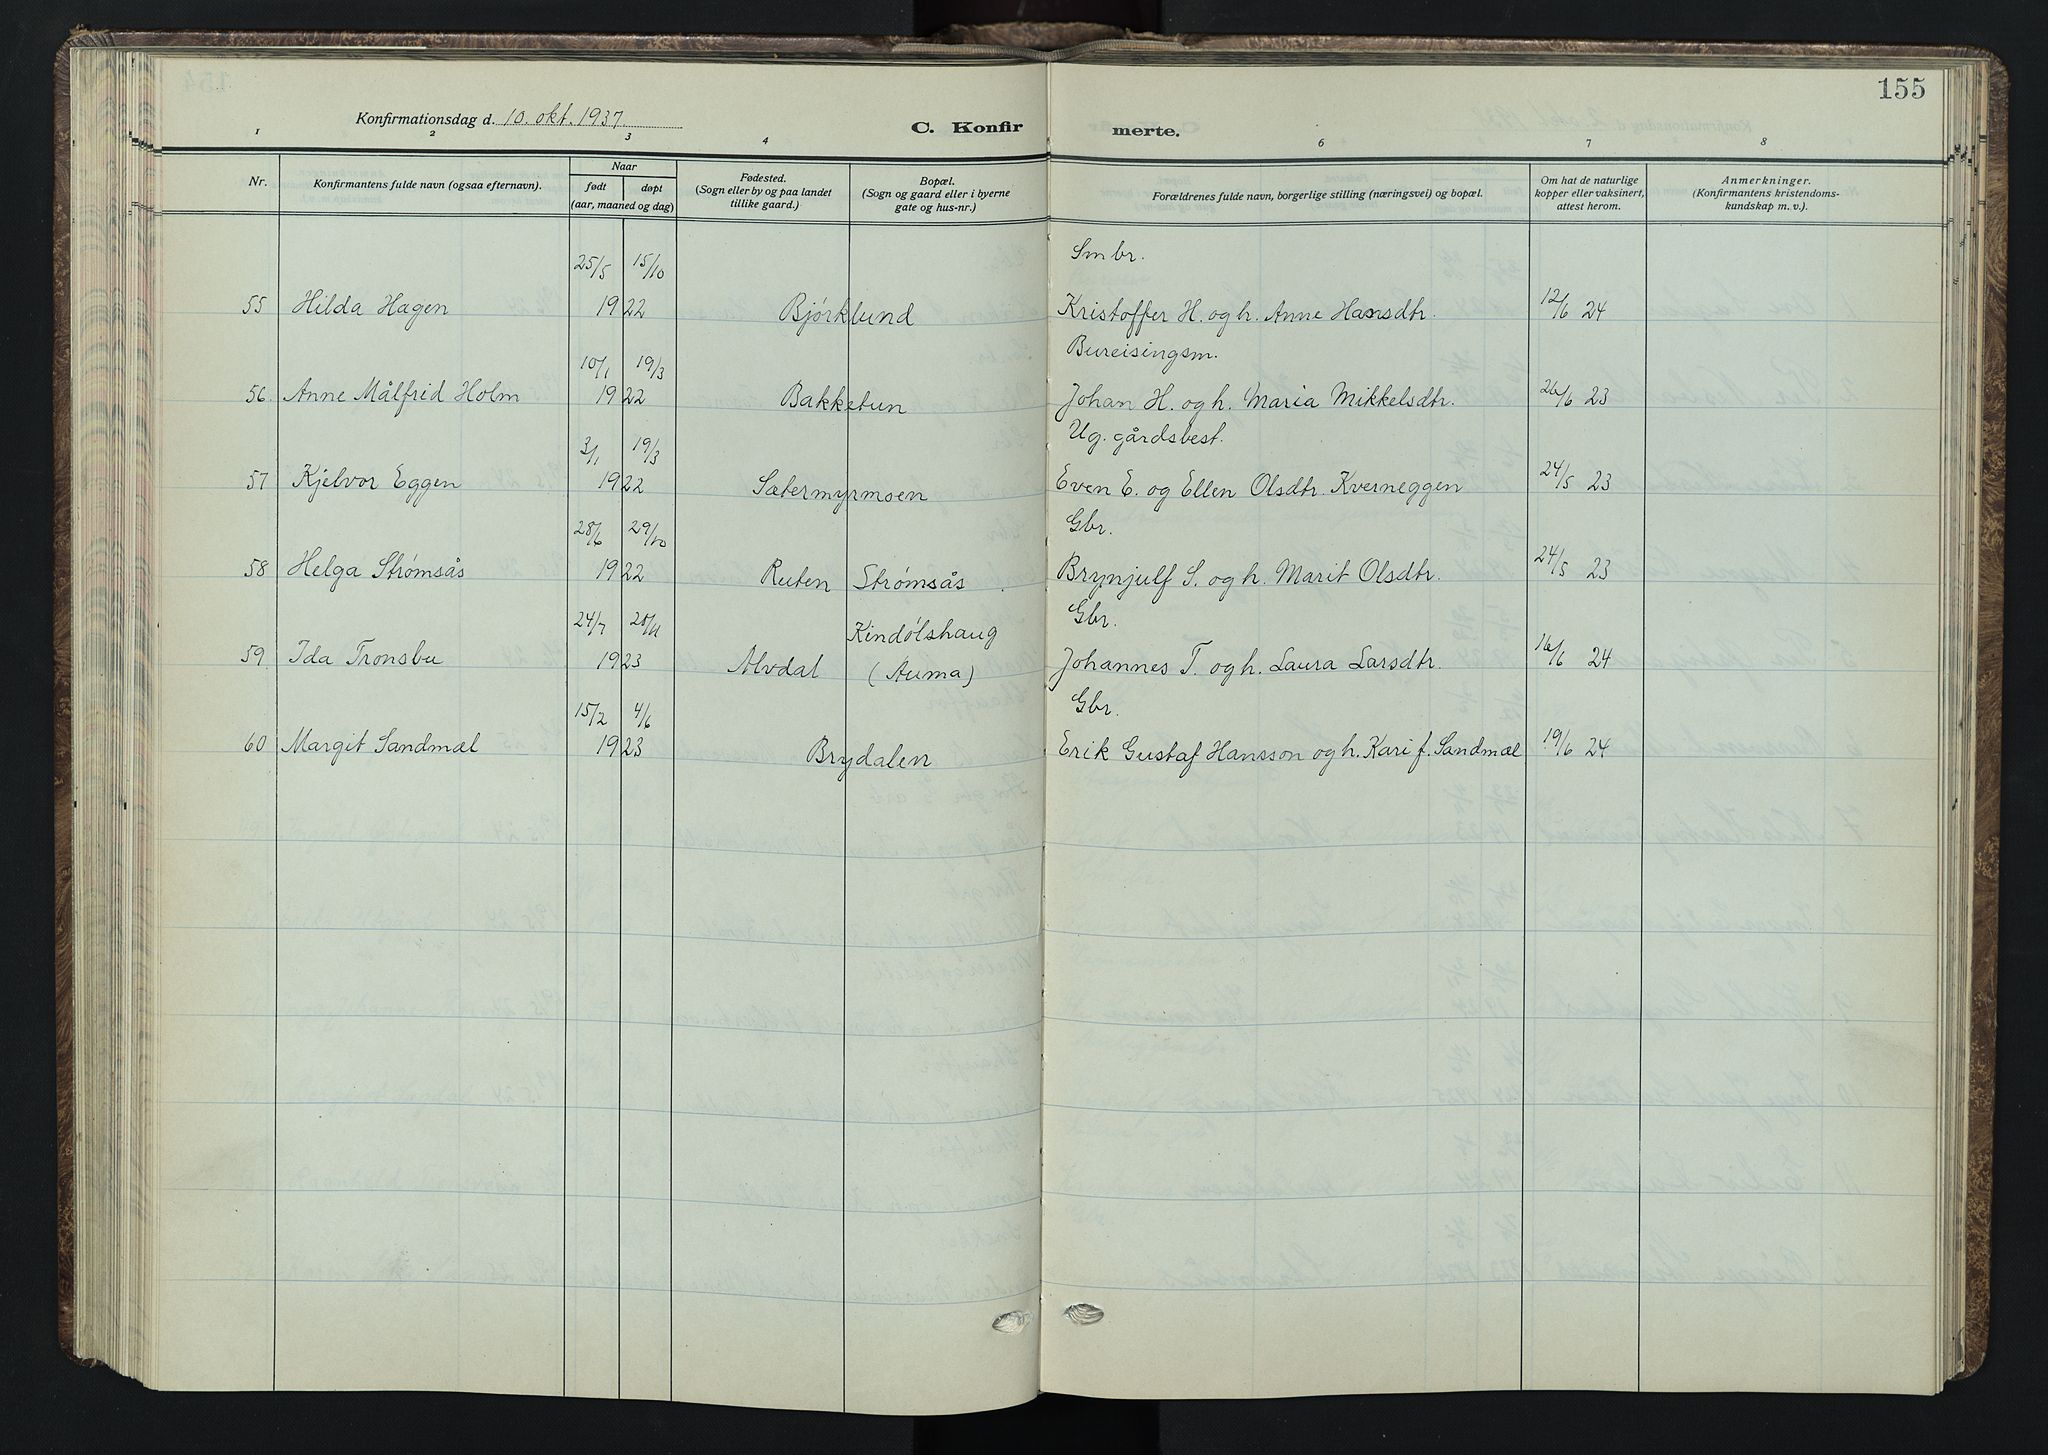 155
Konfirmationsdag d. 10. okt. 1937.
C. Konfirmerte.
1 2 3 4 6 7 8
Nr. Konfirmantens fulde navn (ogsaa efternavn). Naar født døpt (aar, maaned og dag) Fødested. (Sogn eller by og paa landet tillike gaard.) Bopæl. (Sogn og gaard eller i byerne gate og hus-nr.) Forældrenes fulde navn, borgerlige stilling (næringsvei) og bopæl. Om hat de naturlige kopper eller vaksinert, attest herom. Anmerkninger. (Konfirmantens kristendomskundskap m. v.).
25/5 15/10 Smbr.
55 Hilda Hagen 1922 Bjørklund Kristoffer H. og h. Anne Hansdtr. 12/6 24
10/1 19/3 Bureisingsm.
56. Anne Målfrid Holm 1922 Bakketun Johan H. og h. Maria Mikkelsdtr. 26/6 23
3/1 19/3 Ug. gårdsbest.
57 Kjelvor Eggen 1922 Sætermyrmoen Even E. og Ellen Olsdtr. Kverneggen 24/5 23
28/6 29/10 Gbr.
58 Helga Strømsås 1922 Ruten Strømsås Brynjulf S. og h. Marit Olsdtr. 24/5 23
24/7 Kindølshaug Gbr.
59. Ida Tronsbu 1923 Alvdal (Auma) Johannes T. og h. Laura Larsdtr. 16/6 24
15/2 4/6 Gbr.
60 Margit Sandmæl 1923 Brydalen Erik Gustaf Hansson og h. Kari f. Sandmæl 19/6 24